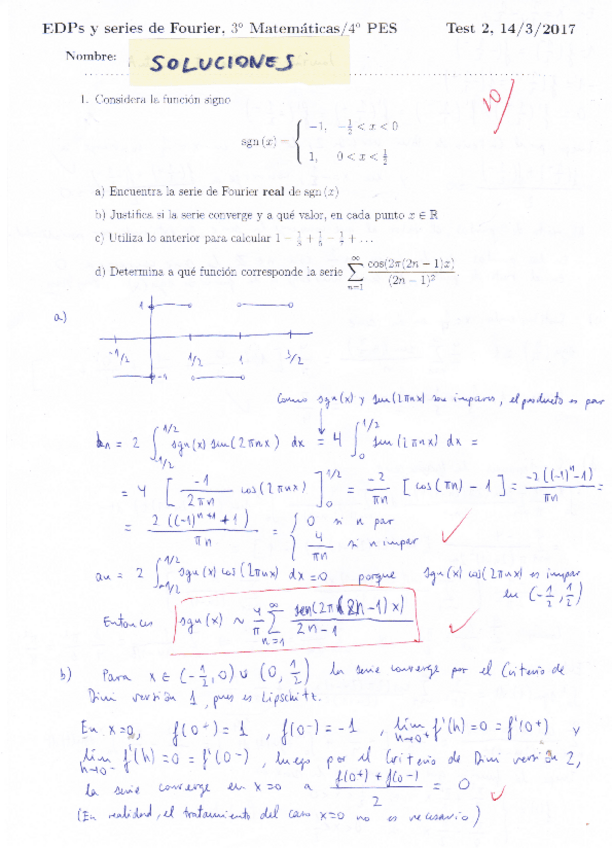 EDPs y series de Fourier, 3º Matemáticas/4º PES Test 2, 14/3/2017
Nombre: SOLUCIONES
10
1. Considera la función signo
sgn (x) = { −1, −1/2 < x < 0
1, 0 < x < 1/2
a) Encuentra la serie de Fourier real de sgn (x)
b) Justifica si la serie converge y a qué valor, en cada punto x ∈ ℝ
c) Utiliza lo anterior para calcular 1 − 1/3 + 1/5 − 1/7 + …
d) Determina a qué función corresponde la serie ∑_{n=1}^{∞} cos(2π(2n − 1)x)/(2n − 1)².
a)
1
-1/2 1/2 1 3/2
-1
Como sgn(x) y sen(2πnx) son impares, el producto es par
bn = 2 ∫_{-1/2}^{1/2} sgn(x) sen(2πnx) dx = 4 ∫_0^{1/2} sen(2πnx) dx =
= 4 [ -1/(2πn) cos(2πnx) ]_0^{1/2} = -2/(πn) [cos(πn) - 1] = -2((-1)^n - 1)/(πn) =
= 2((-1)^{n+1} + 1)/(πn) = { 0 si n par
4/(πn) si n impar
an = 2 ∫_{-1/2}^{1/2} sgn(x) cos(2πnx) dx = 0 porque sgn(x) cos(2πnx) es impar
en (-1/2, 1/2)
Entonces sgn(x) ~ 4/π ∑_{n=1}^{∞} sen(2π(2n-1)x)/(2n-1)
b) Para x ∈ (-1/2, 0) ∪ (0, 1/2) la serie converge por el Criterio de
Dini versión 1, pues es Lipschitz.
En x=0, f(0+) = 1, f(0-) = -1, lim_{h→0+} f'(h) = 0 = f'(0+) y
lim_{h→0-} f'(h) = 0 = f'(0-), luego por el Criterio de Dini versión 2,
la serie converge en x=0 a (f(0+) + f(0-))/2 = 0
(En realidad, el tratamiento del caso x=0 no es necesario)